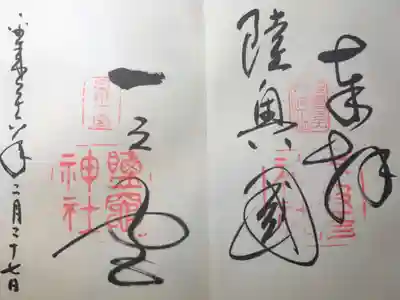 奉拝
陸奥國
一之宮
鹽竈
神社
平成二十六年二月二十七日